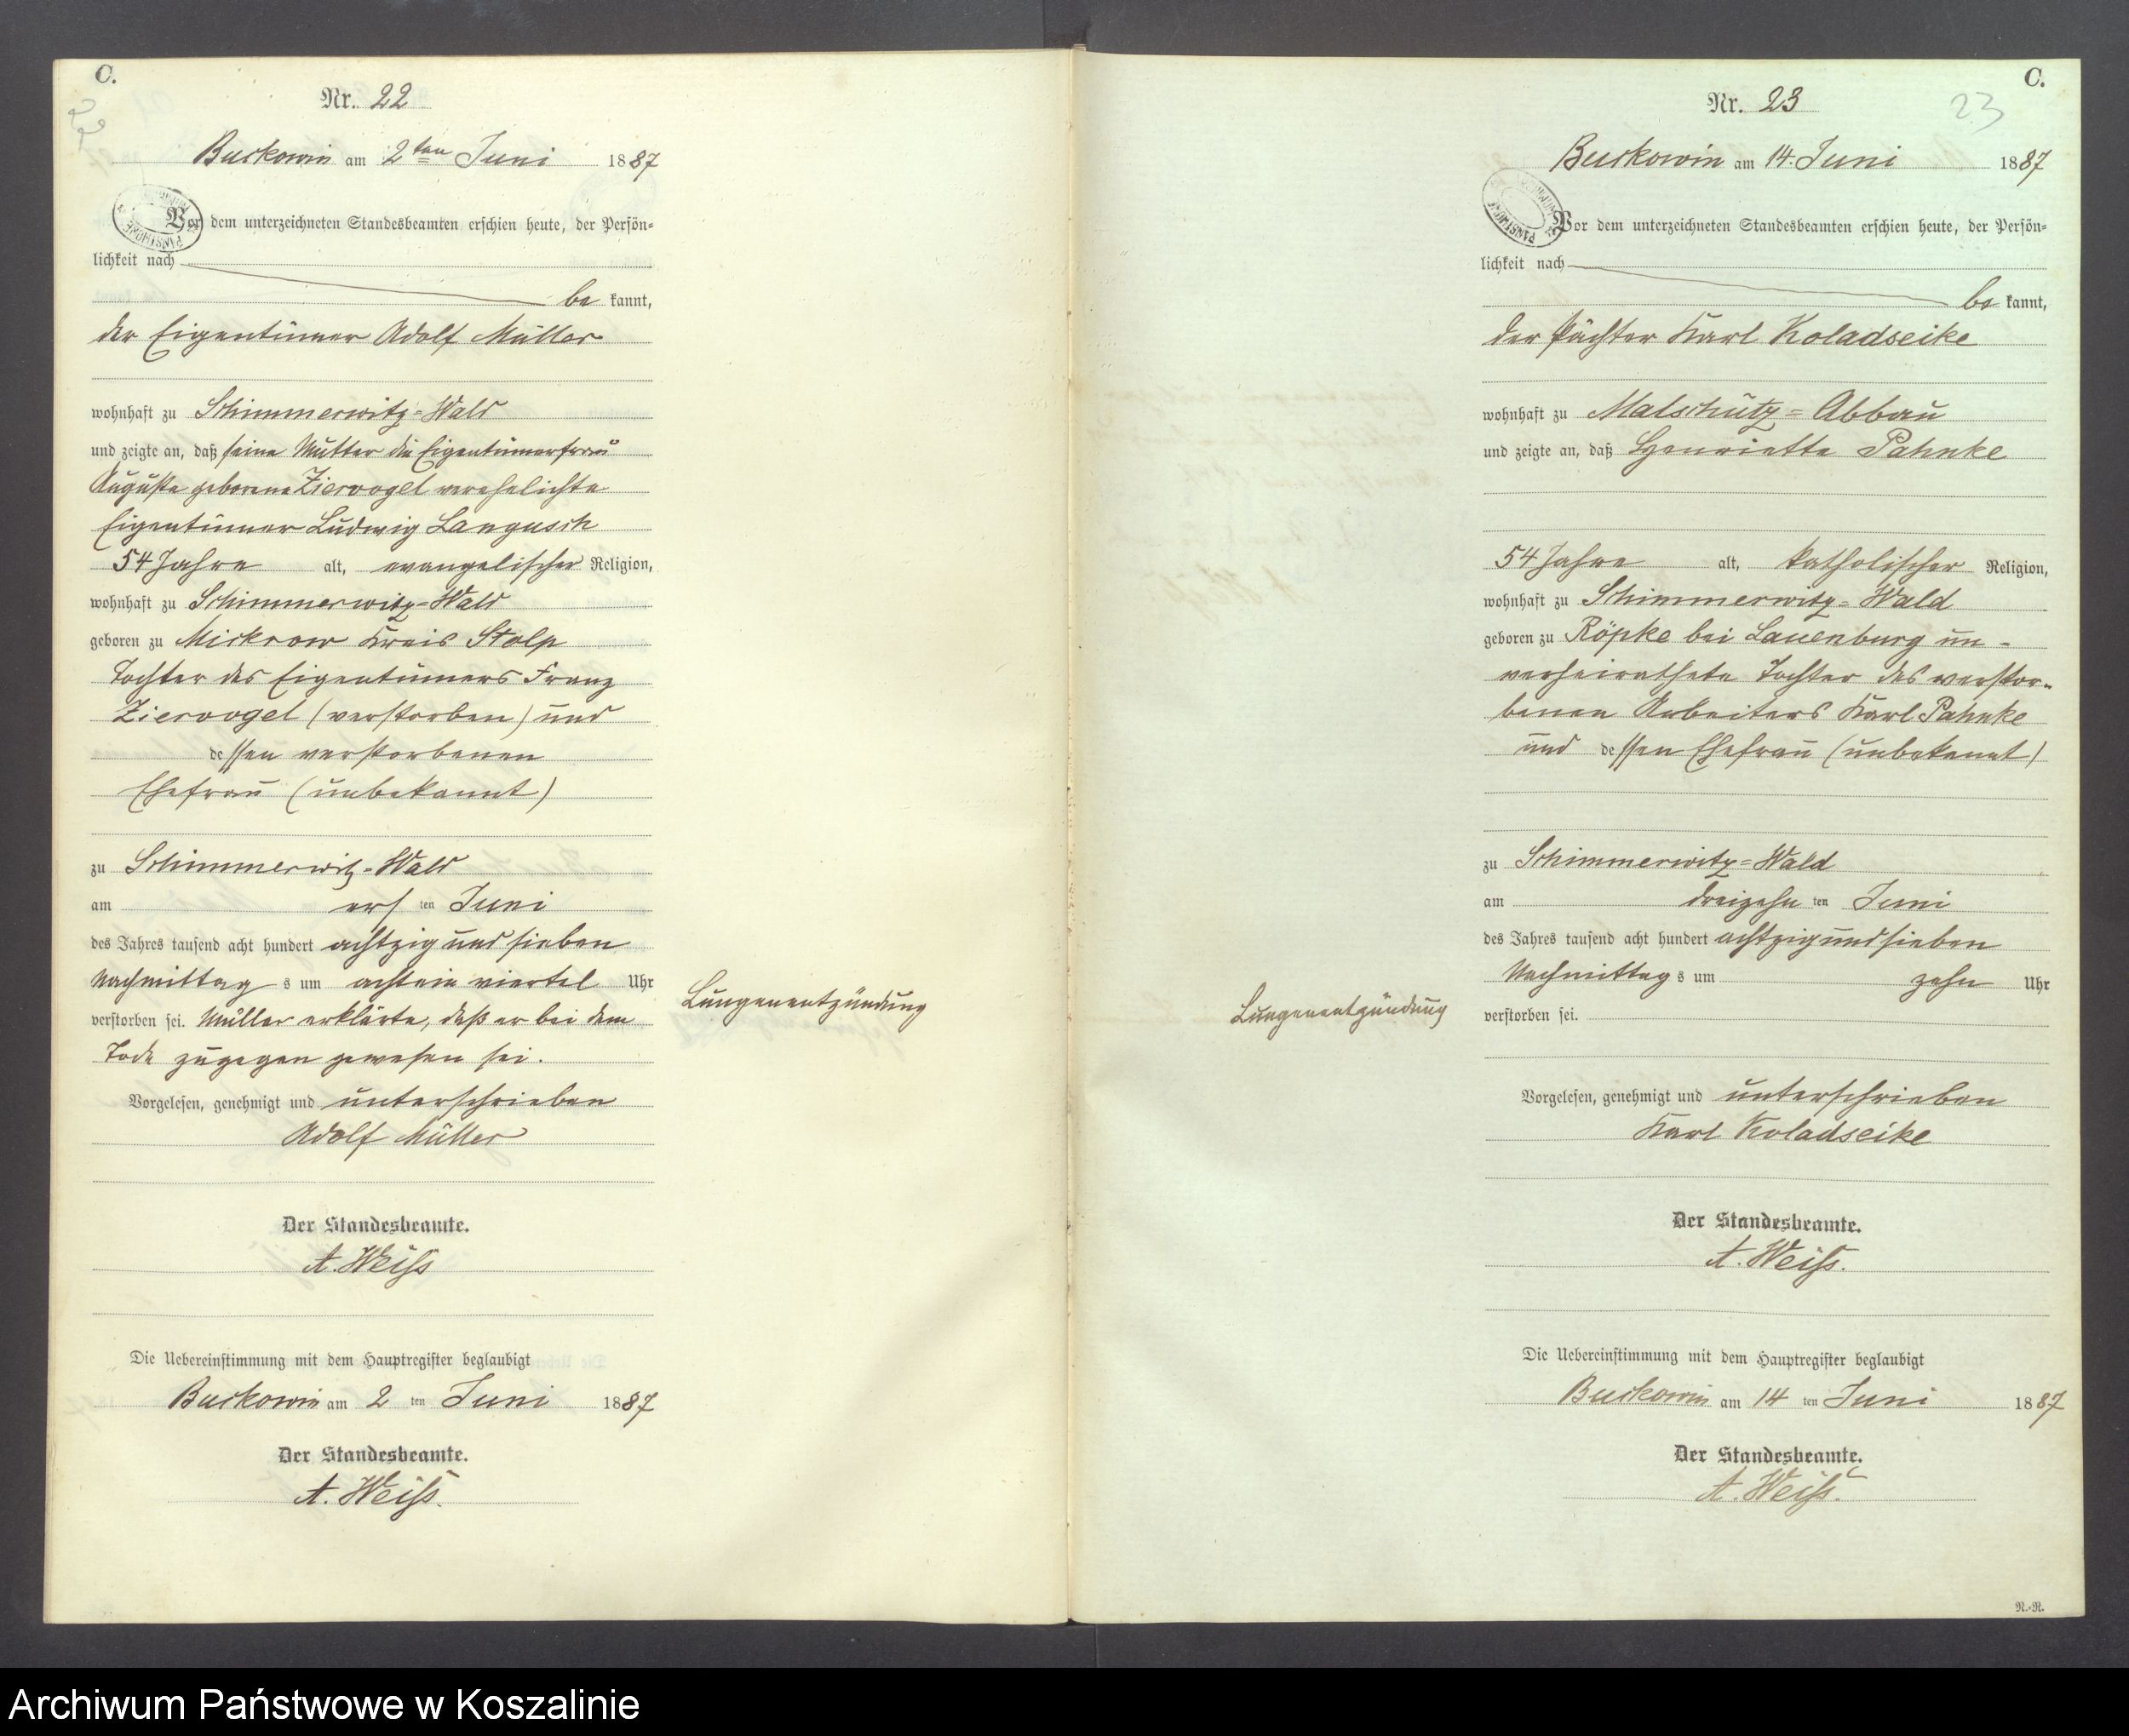 C.
Nr. 22
Buckowin am 2ten Juni 1887
Vor dem unterzeichneten Standesbeamten erschien heute, der Persön-
lichkeit nach
be kannt,
der Eigentümer Adolf Müller
wohnhaft zu Schimmerwitz-Wald
und zeigte an, daß seine Mutter die Eigentümerfrau
Auguste geborene Ziervogel verehelichte
Eigentümer Ludwig Langusch
54 Jahre alt, evangelischer Religion,
wohnhaft zu Schimmerwitz-Wald
geboren zu Mickrow Kreis Stolp
Tochter des Eigentümers Franz
Ziervogel (verstorben) und
dessen verstorbenen
Ehefrau (unbekannt)
zu Schimmerwitz-Wald
am ers ten Juni
des Jahres tausend acht hundert achtzig und sieben
Nachmittag s um acht ein viertel Uhr
verstorben sei. Müller erklärte, daß er bei dem
Tode zugegen gewesen sei.
Lungenentzündung
Vorgelesen, genehmigt und unterschrieben
Adolf Müller
Der Standesbeamte.
A. Weiss
Die Uebereinstimmung mit dem Hauptregister beglaubigt
Buckowin am 2 ten Juni 1887
Der Standesbeamte.
A. Weiss.
C.
Nr. 23
23
Buckowin am 14. Juni 1887
Vor dem unterzeichneten Standesbeamten erschien heute, der Persön-
lichkeit nach
be kannt,
der Pächter Karl Koladseike
wohnhaft zu Malschütz-Abbau
und zeigte an, daß Henriette Pahnke
54 Jahre alt, katholischer Religion,
wohnhaft zu Schimmerwitz-Wald
geboren zu Röpke bei Lauenburg un-
verheirathete Tochter des verstor-
benen Arbeiters Karl Pahnke
und dessen Ehefrau (unbekannt)
zu Schimmerwitz-Wald
am dreizehn ten Juni
des Jahres tausend acht hundert achtzig und sieben
Nachmittag s um zehn Uhr
verstorben sei.
Lungenentzündung
Vorgelesen, genehmigt und unterschrieben
Karl Koladseike
Der Standesbeamte.
A. Weiss.
Die Uebereinstimmung mit dem Hauptregister beglaubigt
Buckowin am 14 ten Juni 1887
Der Standesbeamte.
A. Weiss.
R.-R.
Archiwum Państwowe w Koszalinie